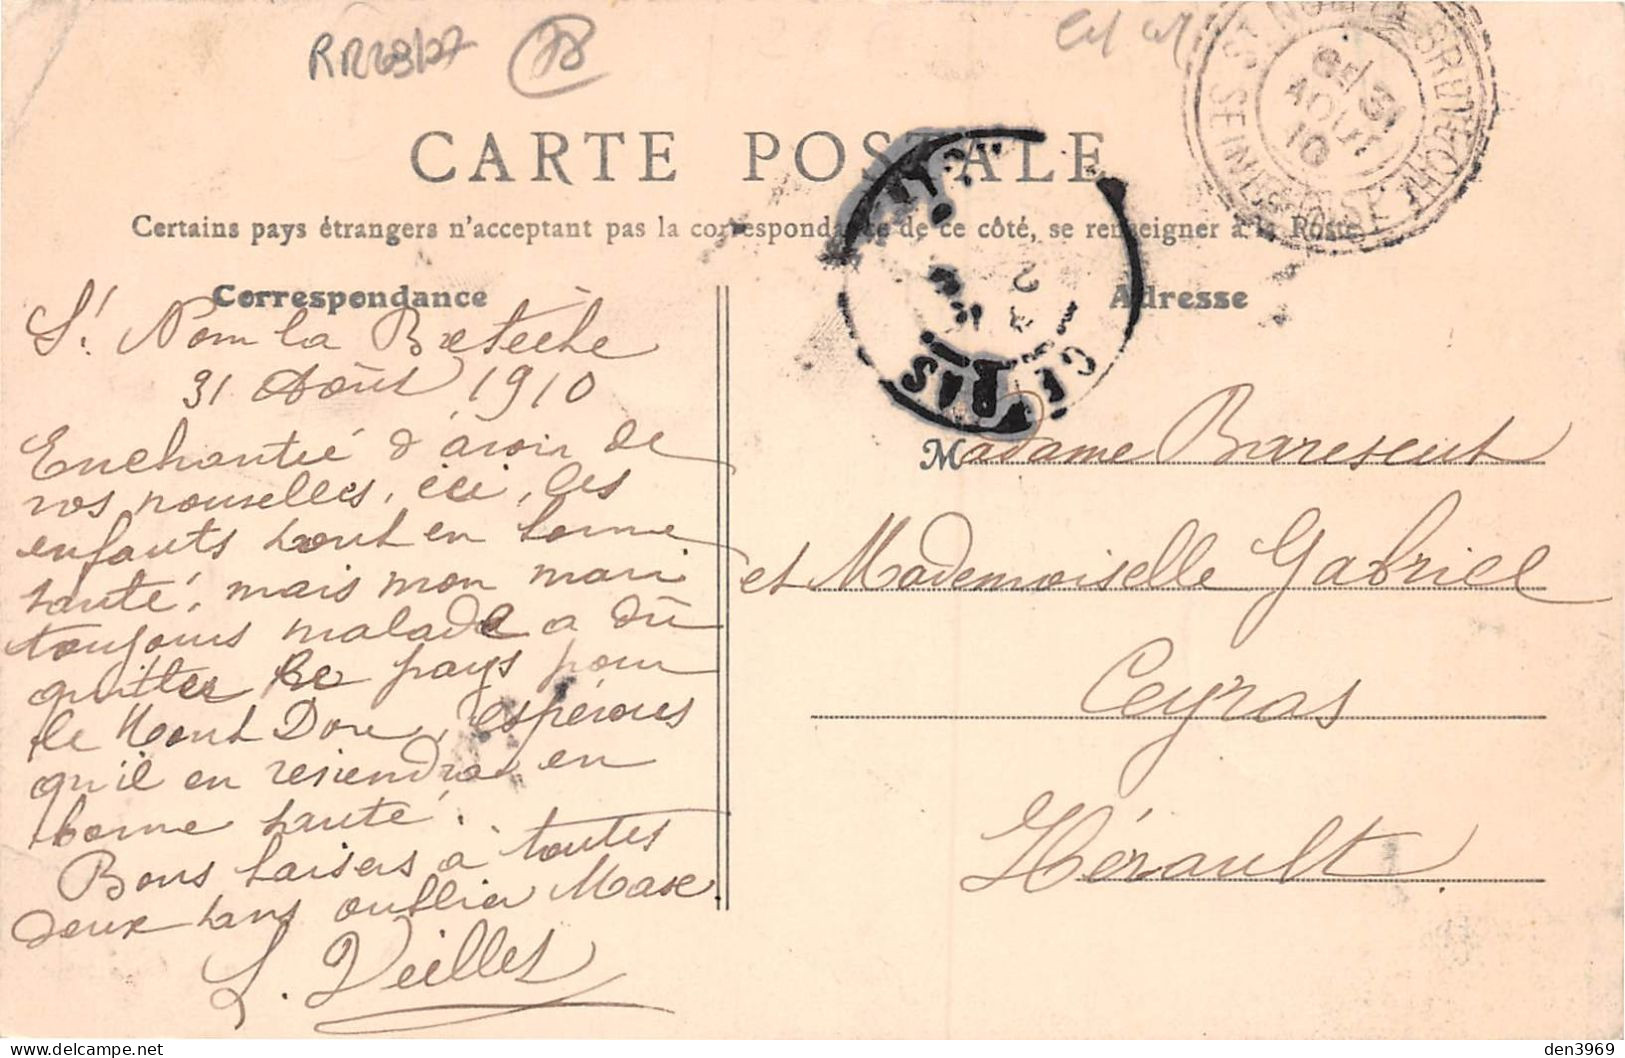 RR28/27
CARTE POSTALE
Certains pays étrangers n'acceptant pas la correspondance de ce côté, se renseigner à la Poste
Correspondance
St Nom la Bretèche
31 Août 1910
Enchantée d'avoir de
vos nouvelles, ici, les
enfants sont en bonne
santé, mais mon mari
toujours malade a dû
quitter le pays pour
le Mont Dore, espérons
qu'il en reviendra en
bonne santé.
Bons baisers à toutes
deux sans oublier
Adresse
Madame
et Mademoiselle Gabriel
Ceyras
Hérault
ST NOM LA BRETECHE
SEINE ET OISE
31
AOUT
10
CEYRAS
den3969